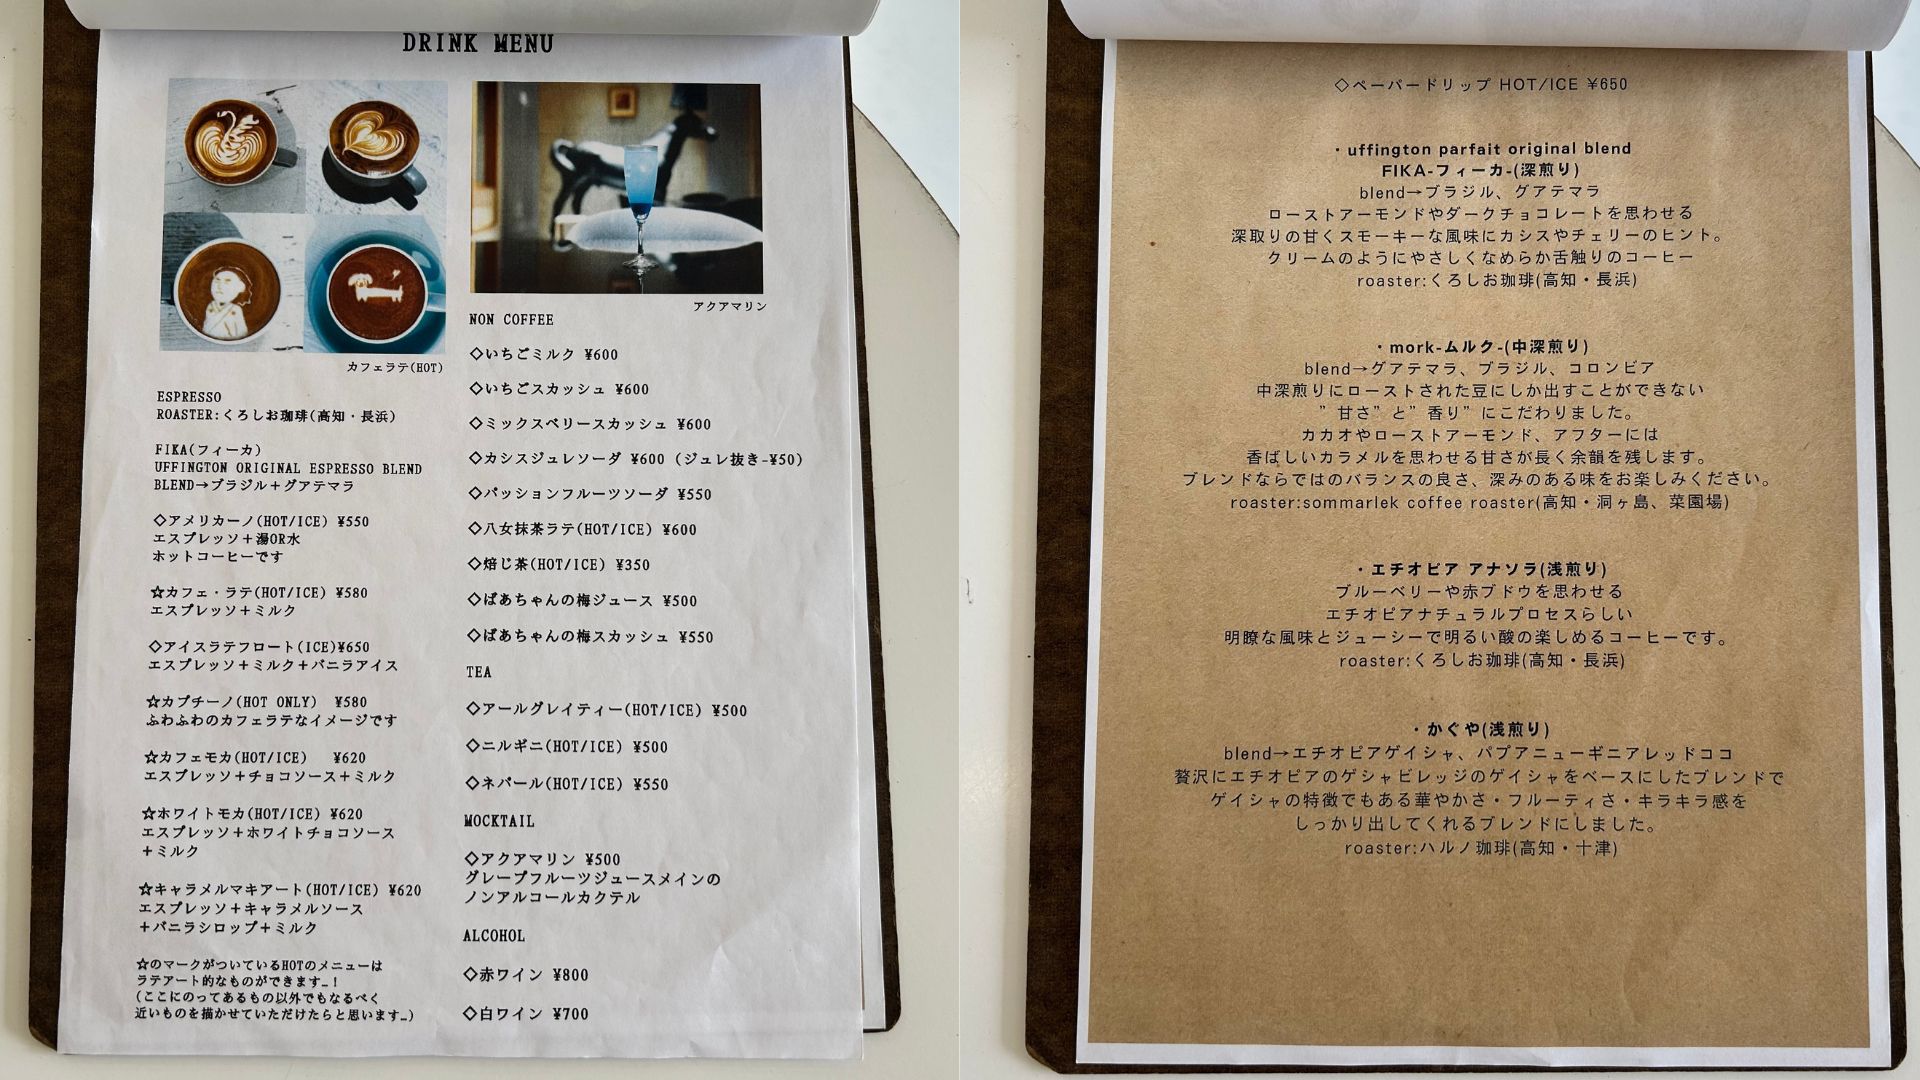 DRINK MENU
カフェラテ(HOT)
ESPRESSO
ROASTER:くろしお珈琲(高知・長浜)
FIKA(フィーカ)
UFFINGTON ORIGINAL ESPRESSO BLEND
BLEND→ブラジル＋グアテマラ
◇アメリカーノ(HOT/ICE) ¥550
エスプレッソ＋湯OR水
ホットコーヒーです
☆カフェ・ラテ(HOT/ICE) ¥580
エスプレッソ＋ミルク
◇アイスラテフロート(ICE)¥650
エスプレッソ＋ミルク＋バニラアイス
☆カプチーノ(HOT ONLY) ¥580
ふわふわのカフェラテなイメージです
☆カフェモカ(HOT/ICE) ¥620
エスプレッソ＋チョコソース＋ミルク
☆ホワイトモカ(HOT/ICE) ¥620
エスプレッソ＋ホワイトチョコソース
＋ミルク
☆キャラメルマキアート(HOT/ICE) ¥620
エスプレッソ＋キャラメルソース
＋バニラシロップ＋ミルク
☆のマークがついているHOTのメニューは
ラテアート的なものができます…！
(ここにのってあるもの以外でもなるべく
近いものを描かせていただけたらと思います…)
アクアマリン
NON COFFEE
◇いちごミルク ¥600
◇いちごスカッシュ ¥600
◇ミックスベリースカッシュ ¥600
◇カシスジュレソーダ ¥600 (ジュレ抜き-¥50)
◇パッションフルーツソーダ ¥550
◇八女抹茶ラテ(HOT/ICE) ¥600
◇焙じ茶(HOT/ICE) ¥350
◇ばあちゃんの梅ジュース ¥500
◇ばあちゃんの梅スカッシュ ¥550
TEA
◇アールグレイティー(HOT/ICE) ¥500
◇ニルギニ(HOT/ICE) ¥500
◇ネパール(HOT/ICE) ¥550
MOCKTAIL
◇アクアマリン ¥500
グレープフルーツジュースメインの
ノンアルコールカクテル
ALCOHOL
◇赤ワイン ¥800
◇白ワイン ¥700
◇ペーパードリップ HOT/ICE ¥650
・uffington parfait original blend
FIKA-フィーカ-(深煎り)
blend→ブラジル、グアテマラ
ローストアーモンドやダークチョコレートを思わせる
深取りの甘くスモーキーな風味にカシスやチェリーのヒント。
クリームのようにやさしくなめらか舌触りのコーヒー
roaster:くろしお珈琲(高知・長浜)
・mork-ムルク-(中深煎り)
blend→グアテマラ、ブラジル、コロンビア
中深煎りにローストされた豆にしか出すことができない
”甘さ”と”香り”にこだわりました。
カカオやローストアーモンド、アフターには
香ばしいカラメルを思わせる甘さが長く余韻を残します。
ブレンドならではのバランスの良さ、深みのある味をお楽しみください。
roaster:sommarlek coffee roaster(高知・洞ヶ島、菜園場)
・エチオピア アナソラ(浅煎り)
ブルーベリーや赤ブドウを思わせる
エチオピアナチュラルプロセスらしい
明瞭な風味とジューシーで明るい酸の楽しめるコーヒーです。
roaster:くろしお珈琲(高知・長浜)
・かぐや(浅煎り)
blend→エチオピアゲイシャ、パプアニューギニアレッドココ
贅沢にエチオピアのゲシャビレッジのゲイシャをベースにしたブレンドで
ゲイシャの特徴でもある華やかさ・フルーティさ・キラキラ感を
しっかり出してくれるブレンドにしました。
roaster:ハルノ珈琲(高知・十津)